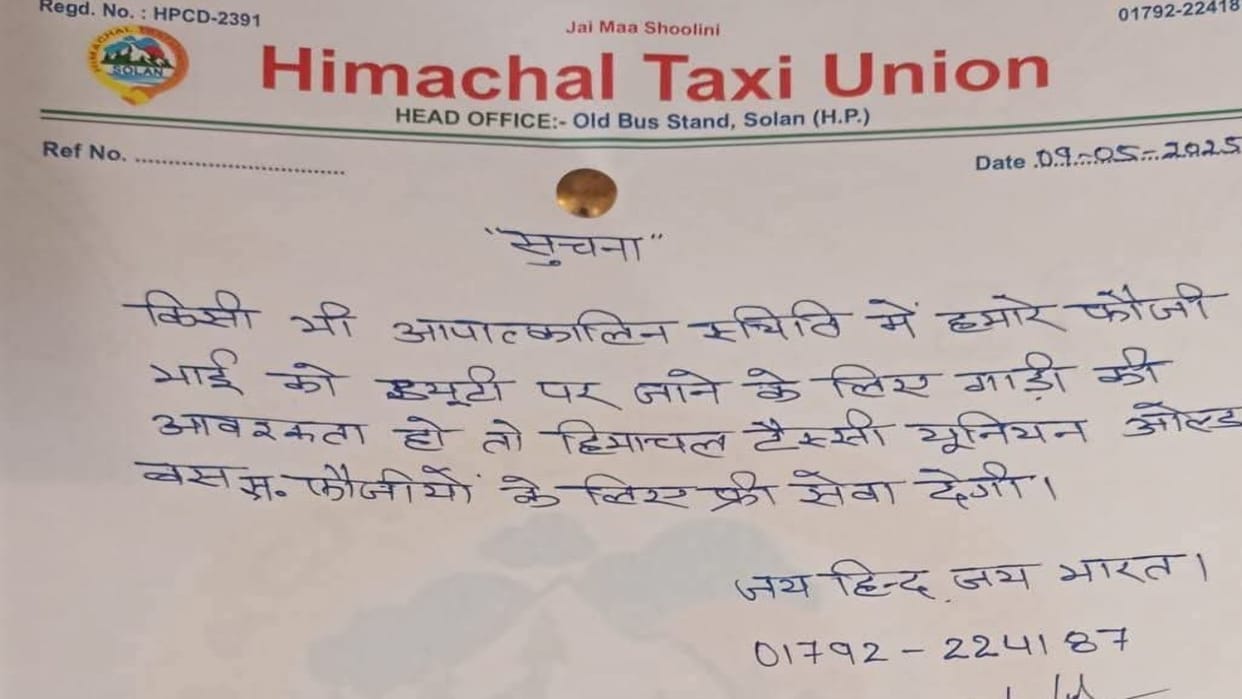 Regd. No. : HPCD-2391
01792-22418
Jai Maa Shoolini
HIMACHAL TAXI
SOLAN
Himachal Taxi Union
HEAD OFFICE:- Old Bus Stand, Solan (H.P.)
Ref No. ........................
Date 09-05-2025
"सुचना"
किसी भी आपात्कालिन स्थिति में हमारे फौजी
भाई को ड्यूटी पर जाने के लिए गाड़ी की
आवश्कता हो तो हिमाचल टैक्सी यूनियन ओल्ड
बस स्ट. फौजीयों के लिए फ्री सेवा देगी।
जय हिन्द जय भारत।
01792-224187